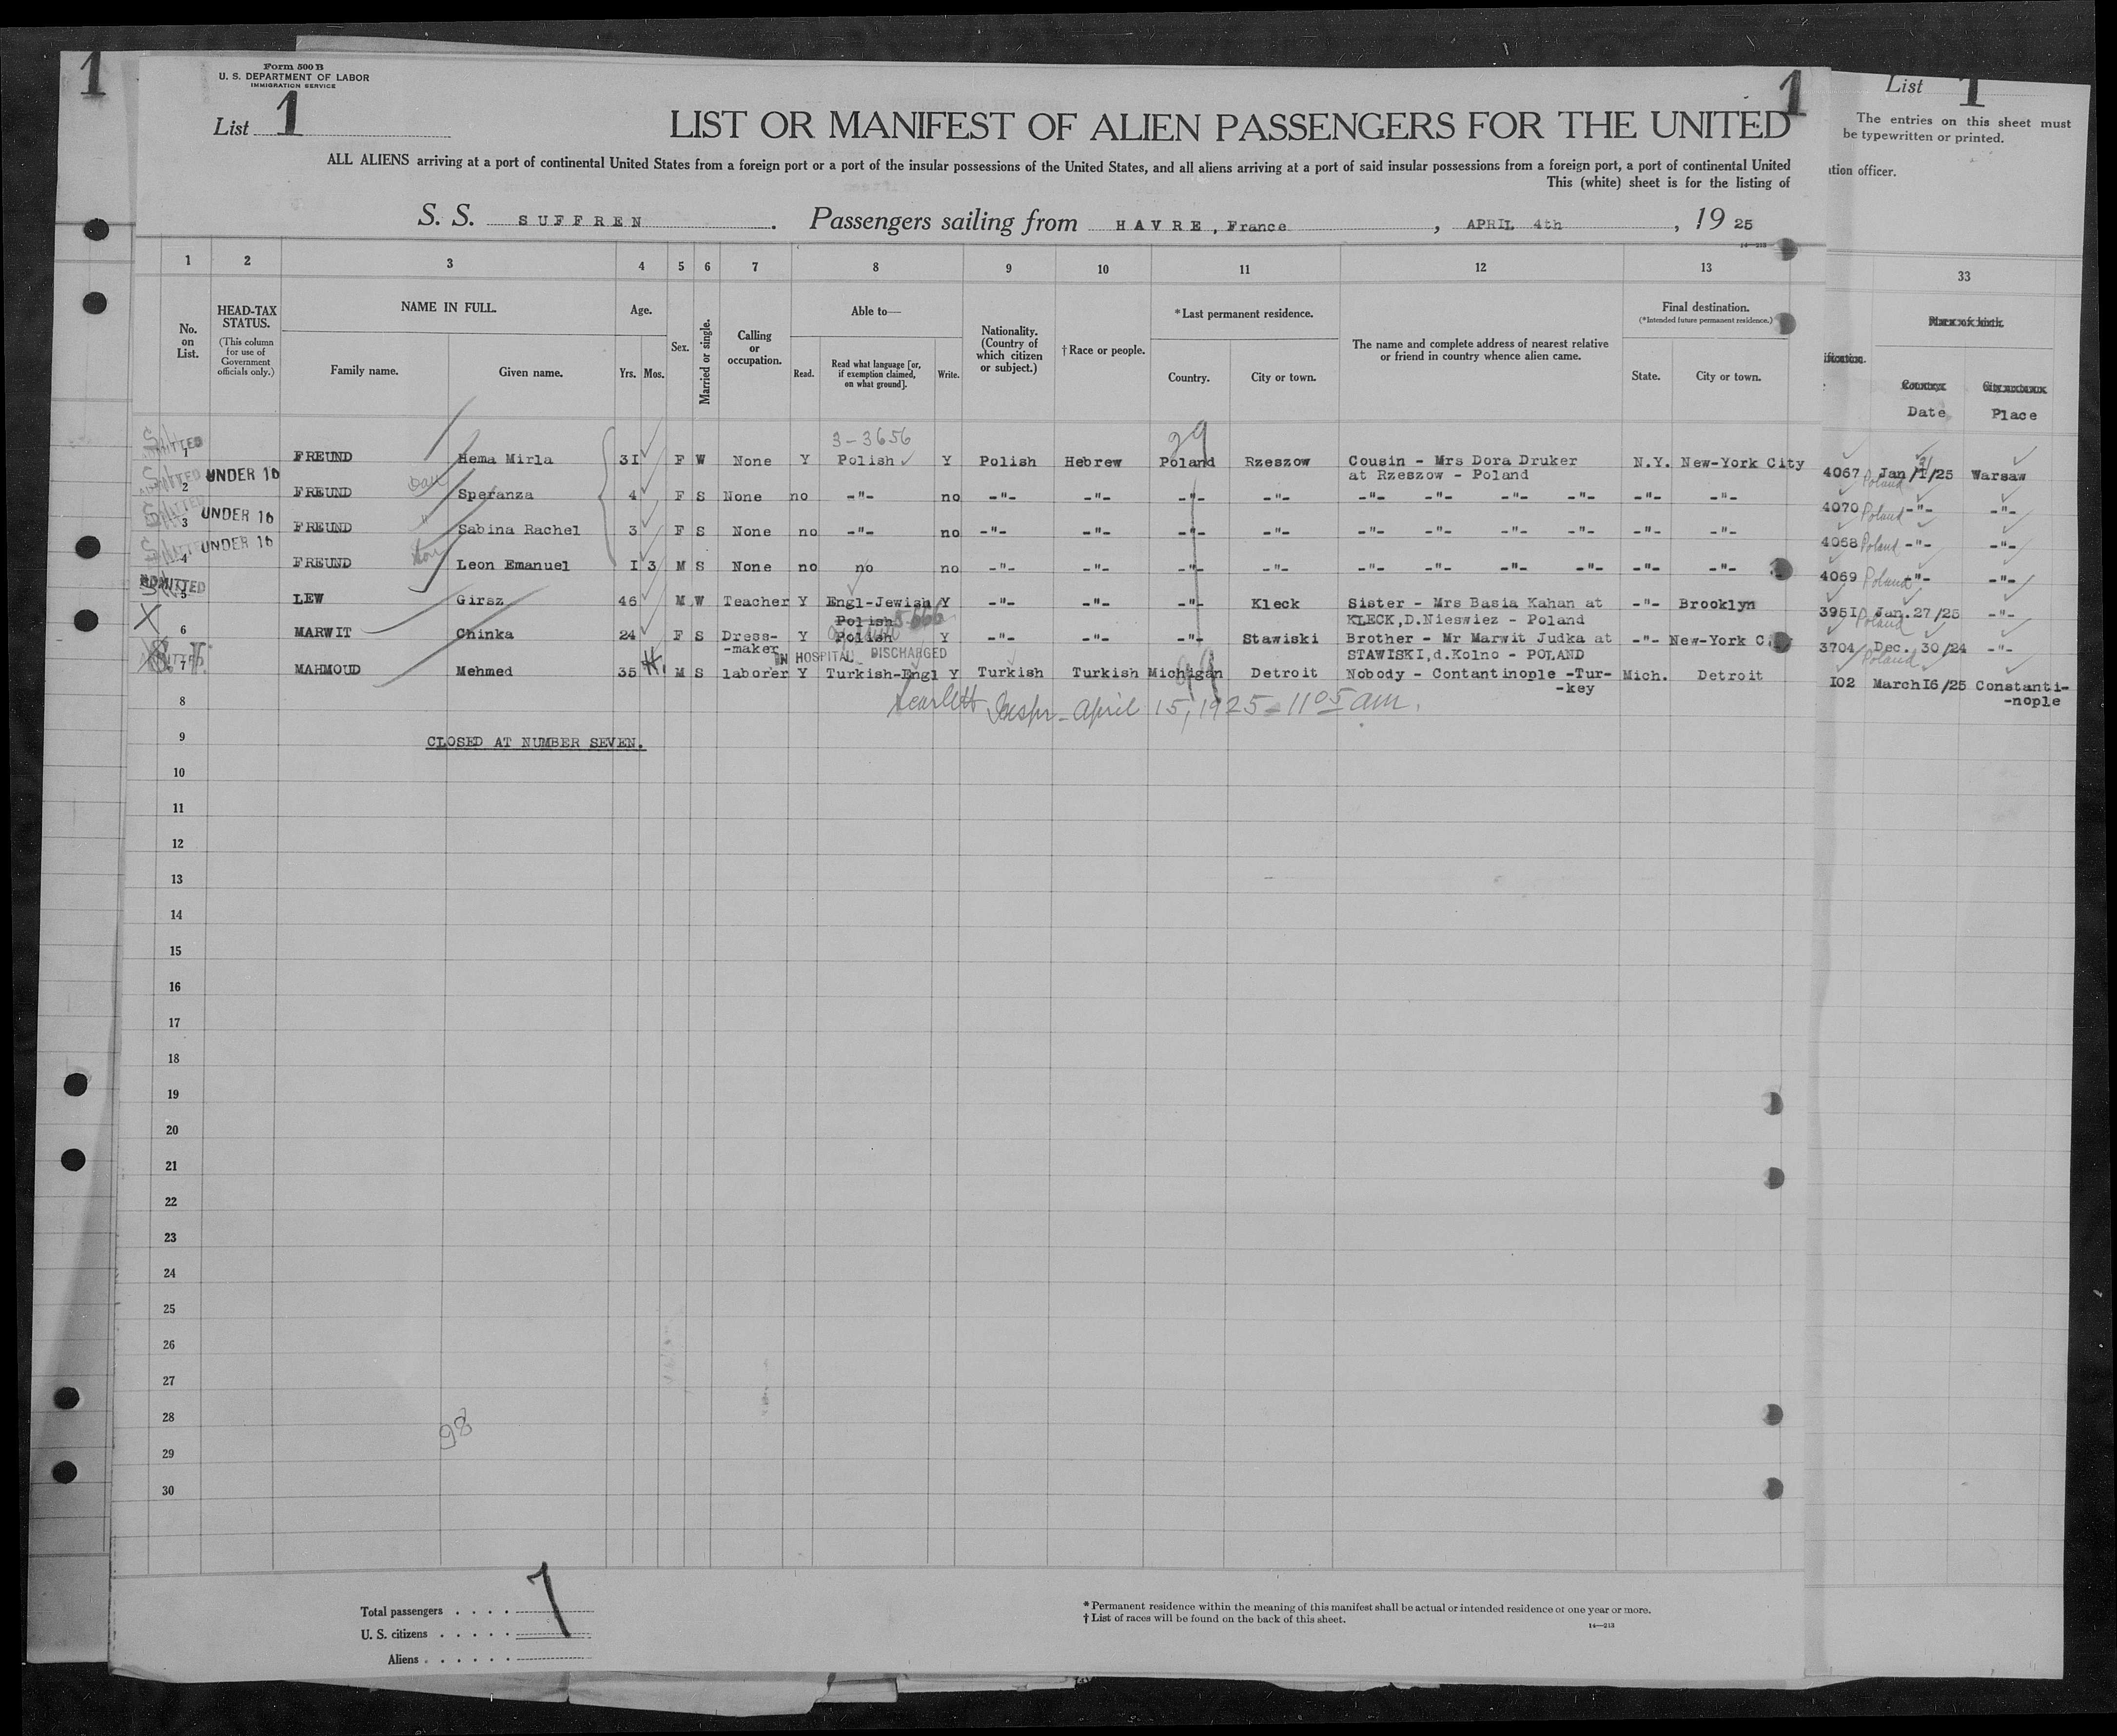 1
Form 500 B
U. S. DEPARTMENT OF LABOR
IMMIGRATION SERVICE
List 1
1
LIST OR MANIFEST OF ALIEN PASSENGERS FOR THE UNITED
ALL ALIENS arriving at a port of continental United States from a foreign port or a port of the insular possessions of the United States, and all aliens arriving at a port of said insular possessions from a foreign port, a port of continental United
This (white) sheet is for the listing of
S. S. SUFFREN . Passengers sailing from HAVRE, France , APRIL 4th , 19 25
14—213
List 1
The entries on this sheet must
be typewritten or printed.
ation officer.
1 2 3 4 5 6 7 8 9 10 11 12 13 33
No. on List.
HEAD-TAX STATUS.
(This column for use of Government officials only.)
NAME IN FULL.
Family name. Given name.
Age.
Yrs. Mos.
Sex.
Married or single.
Calling or occupation.
Able to—
Read. Read what language [or, if exemption claimed, on what ground]. Write.
Nationality. (Country of which citizen or subject.)
† Race or people.
* Last permanent residence.
Country. City or town.
The name and complete address of nearest relative or friend in country whence alien came.
Final destination.
(*Intended future permanent residence.)
State. City or town.
Date Place
3-3656 29
ADMITTED 1 FREUND Hema Mirla 31 F W None Y Polish Y Polish Hebrew Poland Rzeszow Cousin - Mrs Dora Druker N.Y. New-York City
at Rzeszow - Poland
4067 Poland Jan/1/25 Warsaw
ADMITTED 2 UNDER 16 FREUND Speranza 4 F S None no -"- no -"- -"- -"- -"- -"- -"- -"- -"- -"- -"-
4070 Poland -"- -"-
3 UNDER 16 FREUND Sabina Rachel 3 F S None no -"- no -"- -"- -"- -"- -"- -"- -"- -"- -"- -"-
4068 Poland -"- -"-
4 UNDER 16 FREUND Leon Emanuel I 3 M S None no no no -"- -"- -"- -"- -"- -"- -"- -"- -"- -"-
4069 Poland -"- -"-
ADMITTED 5 LEW Girsz 46 M W Teacher Y Engl-Jewish Y -"- -"- -"- Kleck Sister - Mrs Basia Kahan at -"- Brooklyn
Polish KLECK,D.Nieswiez - Poland
3951 Poland Jan.27/25 -"-
X 6 MARWIT Chinka 24 F S Dress- Y Polish Y -"- -"- -"- Stawiski Brother - Mr Marwit Judka at -"- New-York C
-maker STAWISKI,d.Kolno - POLAND
3704 Poland Dec. 30/24 -"-
IN HOSPITAL DISCHARGED
7 MAHMOUD Mehmed 35 M S laborer Y Turkish-Engl Y Turkish Turkish Michigan Detroit Nobody - Contantinople -Tur- Mich. Detroit
-key
I02 March I6/25 Constanti-
-nople
8 Inspr - April 15, 1925 - 11 05 am.
9 CLOSED AT NUMBER SEVEN.
10
11
12
13
14
15
16
17
18
19
20
21
22
23
24
25
26
27
28
98
29
30
Total passengers . . . . 7
U. S. citizens . . . . .
Aliens . . . . . .
* Permanent residence within the meaning of this manifest shall be actual or intended residence of one year or more.
† List of races will be found on the back of this sheet.
14—213